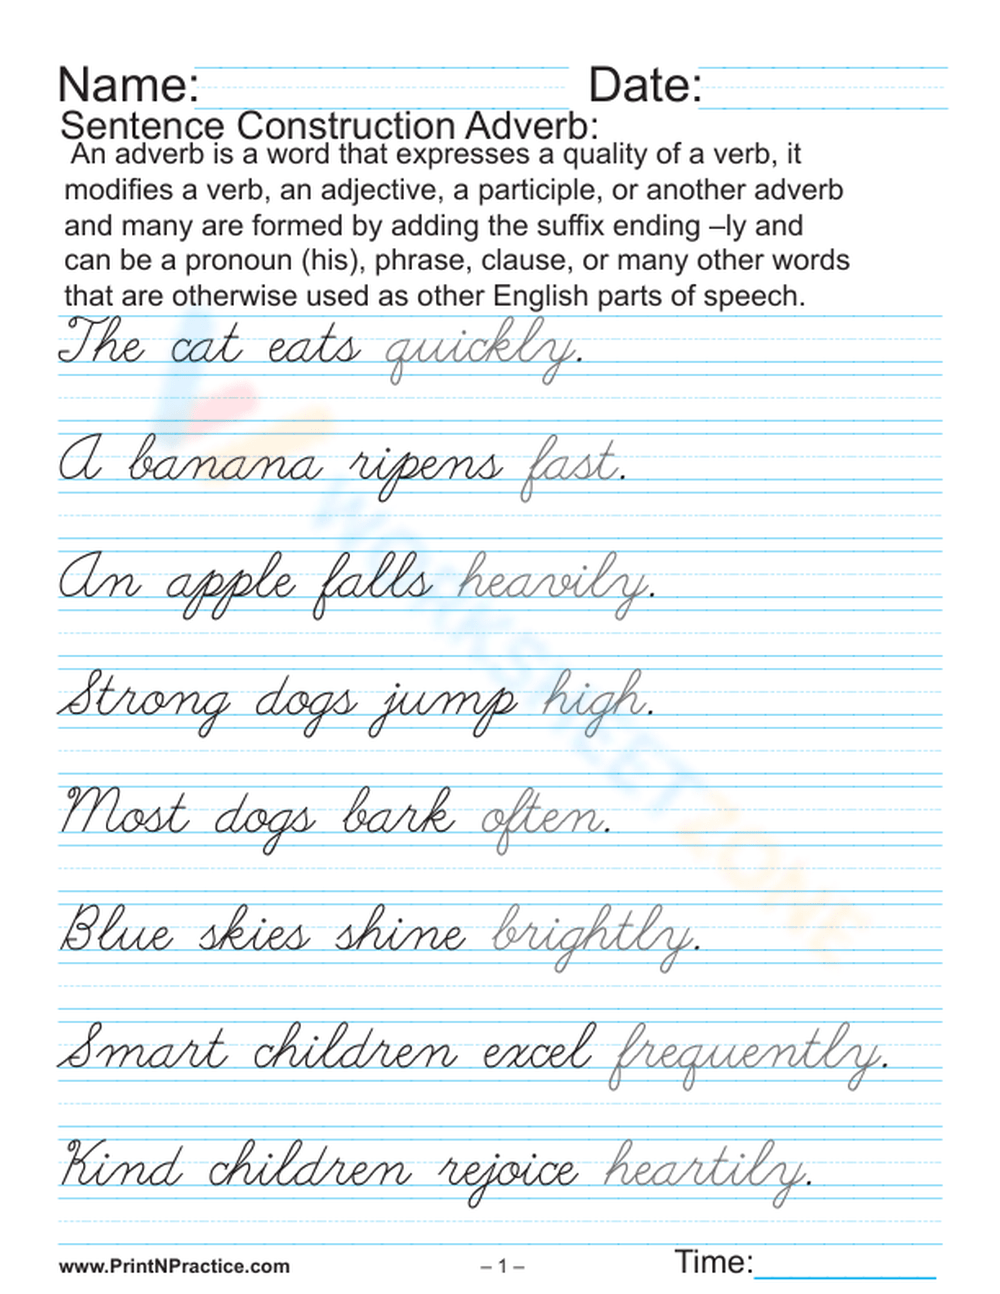 Name: Date:
Sentence Construction Adverb:
An adverb is a word that expresses a quality of a verb, it
modifies a verb, an adjective, a participle, or another adverb
and many are formed by adding the suffix ending –ly and
can be a pronoun (his), phrase, clause, or many other words
that are otherwise used as other English parts of speech.
The cat eats quickly.
A banana ripens fast.
An apple falls heavily.
Strong dogs jump high.
Most dogs bark often.
Blue skies shine brightly.
Smart children excel frequently.
Kind children rejoice heartily.
WORKSHEETZONE
www.PrintNPractice.com – 1 – Time: